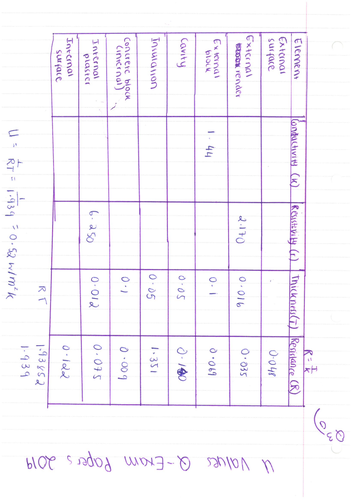 Q3 a)
U Values Q - Exam Papers 2019
R = T/k
Element | Conductivity (k) | Resistivity (r) | Thickness (T) | Resistance (R)
External surface | | | | 0.048
External render | | 2.170 | 0.016 | 0.035
External block | 1.44 | | 0.1 | 0.069
Cavity | | | 0.05 | 0.180
Insulation | | | 0.05 | 1.351
Concrete block (internal) | | | 0.1 | 0.009
Internal plaster | | 6.250 | 0.012 | 0.075
Internal surface | | | | 0.122
RT 1.93852
1.939
U = 1/RT = 1/1.939 = 0.52 w/m²k